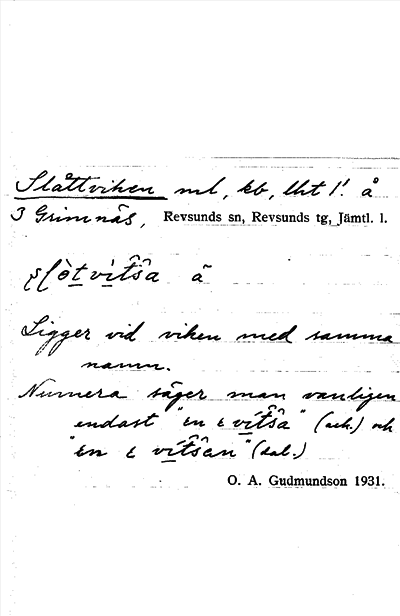 Slåttviken ml, kb, lht 1! å
3 Grimnäs, Revsunds sn, Revsunds tg, Jämtl. l.
å
Ligger vid viken med samma
namn.
Numera säger man vanligen
endast "en (ack.) och
"en (dat.)
O. A. Gudmundson 1931.